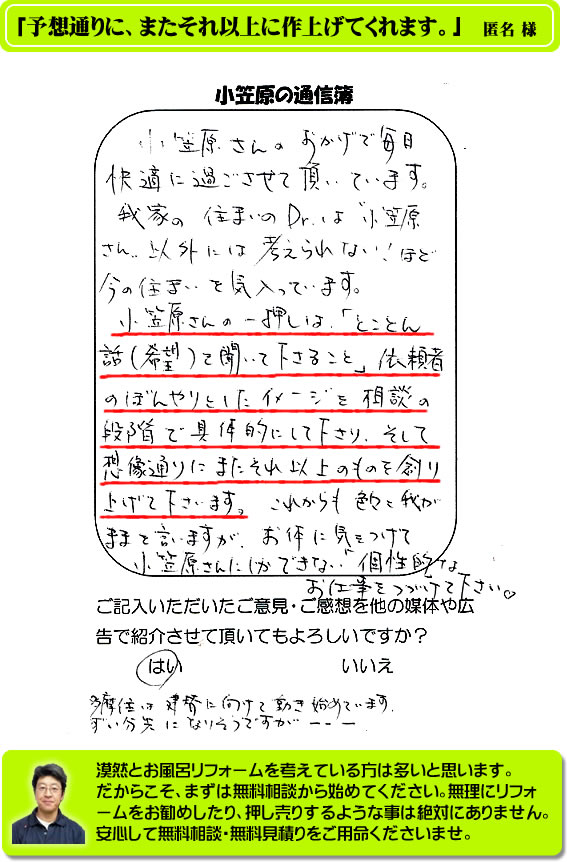 「予想通りに、またそれ以上に作上げてくれます。」 匿名 様
小笠原の通信簿
小笠原さんのおかげで毎日
快適に過ごさせて頂いています。
我家の住まいのDr.は"小笠原
さん"以外には考えられない!ほど
今の住まいを気入っています。
小笠原さんの一押しは、「とことん
話(希望)を聞いて下さること」依頼者
のぼんやりとしたイメージを相談の
段階で具体的にして下さり、そして
想像通りにまたそれ以上のものを創り
上げて下さいます。これからも色々と我が
ままを言いますが、お体に気をつけて
小笠原さんにしかできない"個性的な
お仕事をつづけて下さい♡
ご記入いただいたご意見・ご感想を他の媒体や広
告で紹介させて頂いてもよろしいですか?
はい いいえ
多摩住は建替に向けて動き始めています。
ずい分先になりそうですが———
漠然とお風呂リフォームを考えている方は多いと思います。
だからこそ、まずは無料相談から始めてください。無理にリフォ
ームをお勧めしたり、押し売りするような事は絶対にありません。
安心して無料相談・無料見積りをご用命くださいませ。